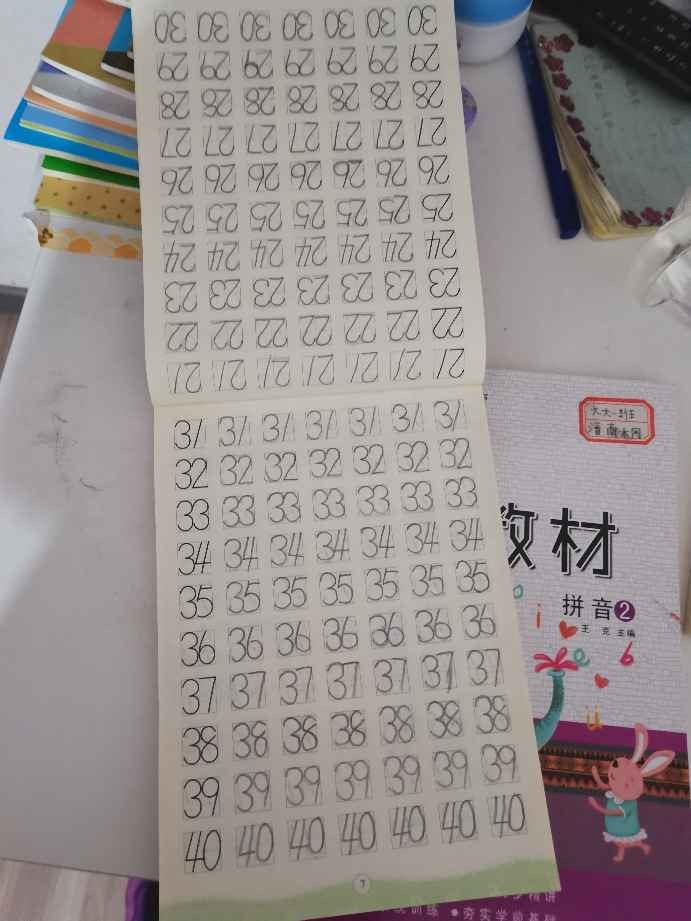 21 21 21 21 21 21 21
22 22 22 22 22 22 22
23 23 23 23 23 23 23
24 24 24 24 24 24 24
25 25 25 25 25 25 25
26 26 26 26 26 26 26
27 27 27 27 27 27 27
28 28 28 28 28 28 28
29 29 29 29 29 29 29
30 30 30 30 30 30 30
31 31 31 31 31 31 31
32 32 32 32 32 32 32
33 33 33 33 33 33 33
34 34 34 34 34 34 34
35 35 35 35 35 35 35
36 36 36 36 36 36 36
37 37 37 37 37 37 37
38 38 38 38 38 38 38
39 39 39 39 39 39 39
40 40 40 40 40 40 40
7
教材
拼音2
主编
i
e b
ü
精讲
训练 ●夯实学前基础